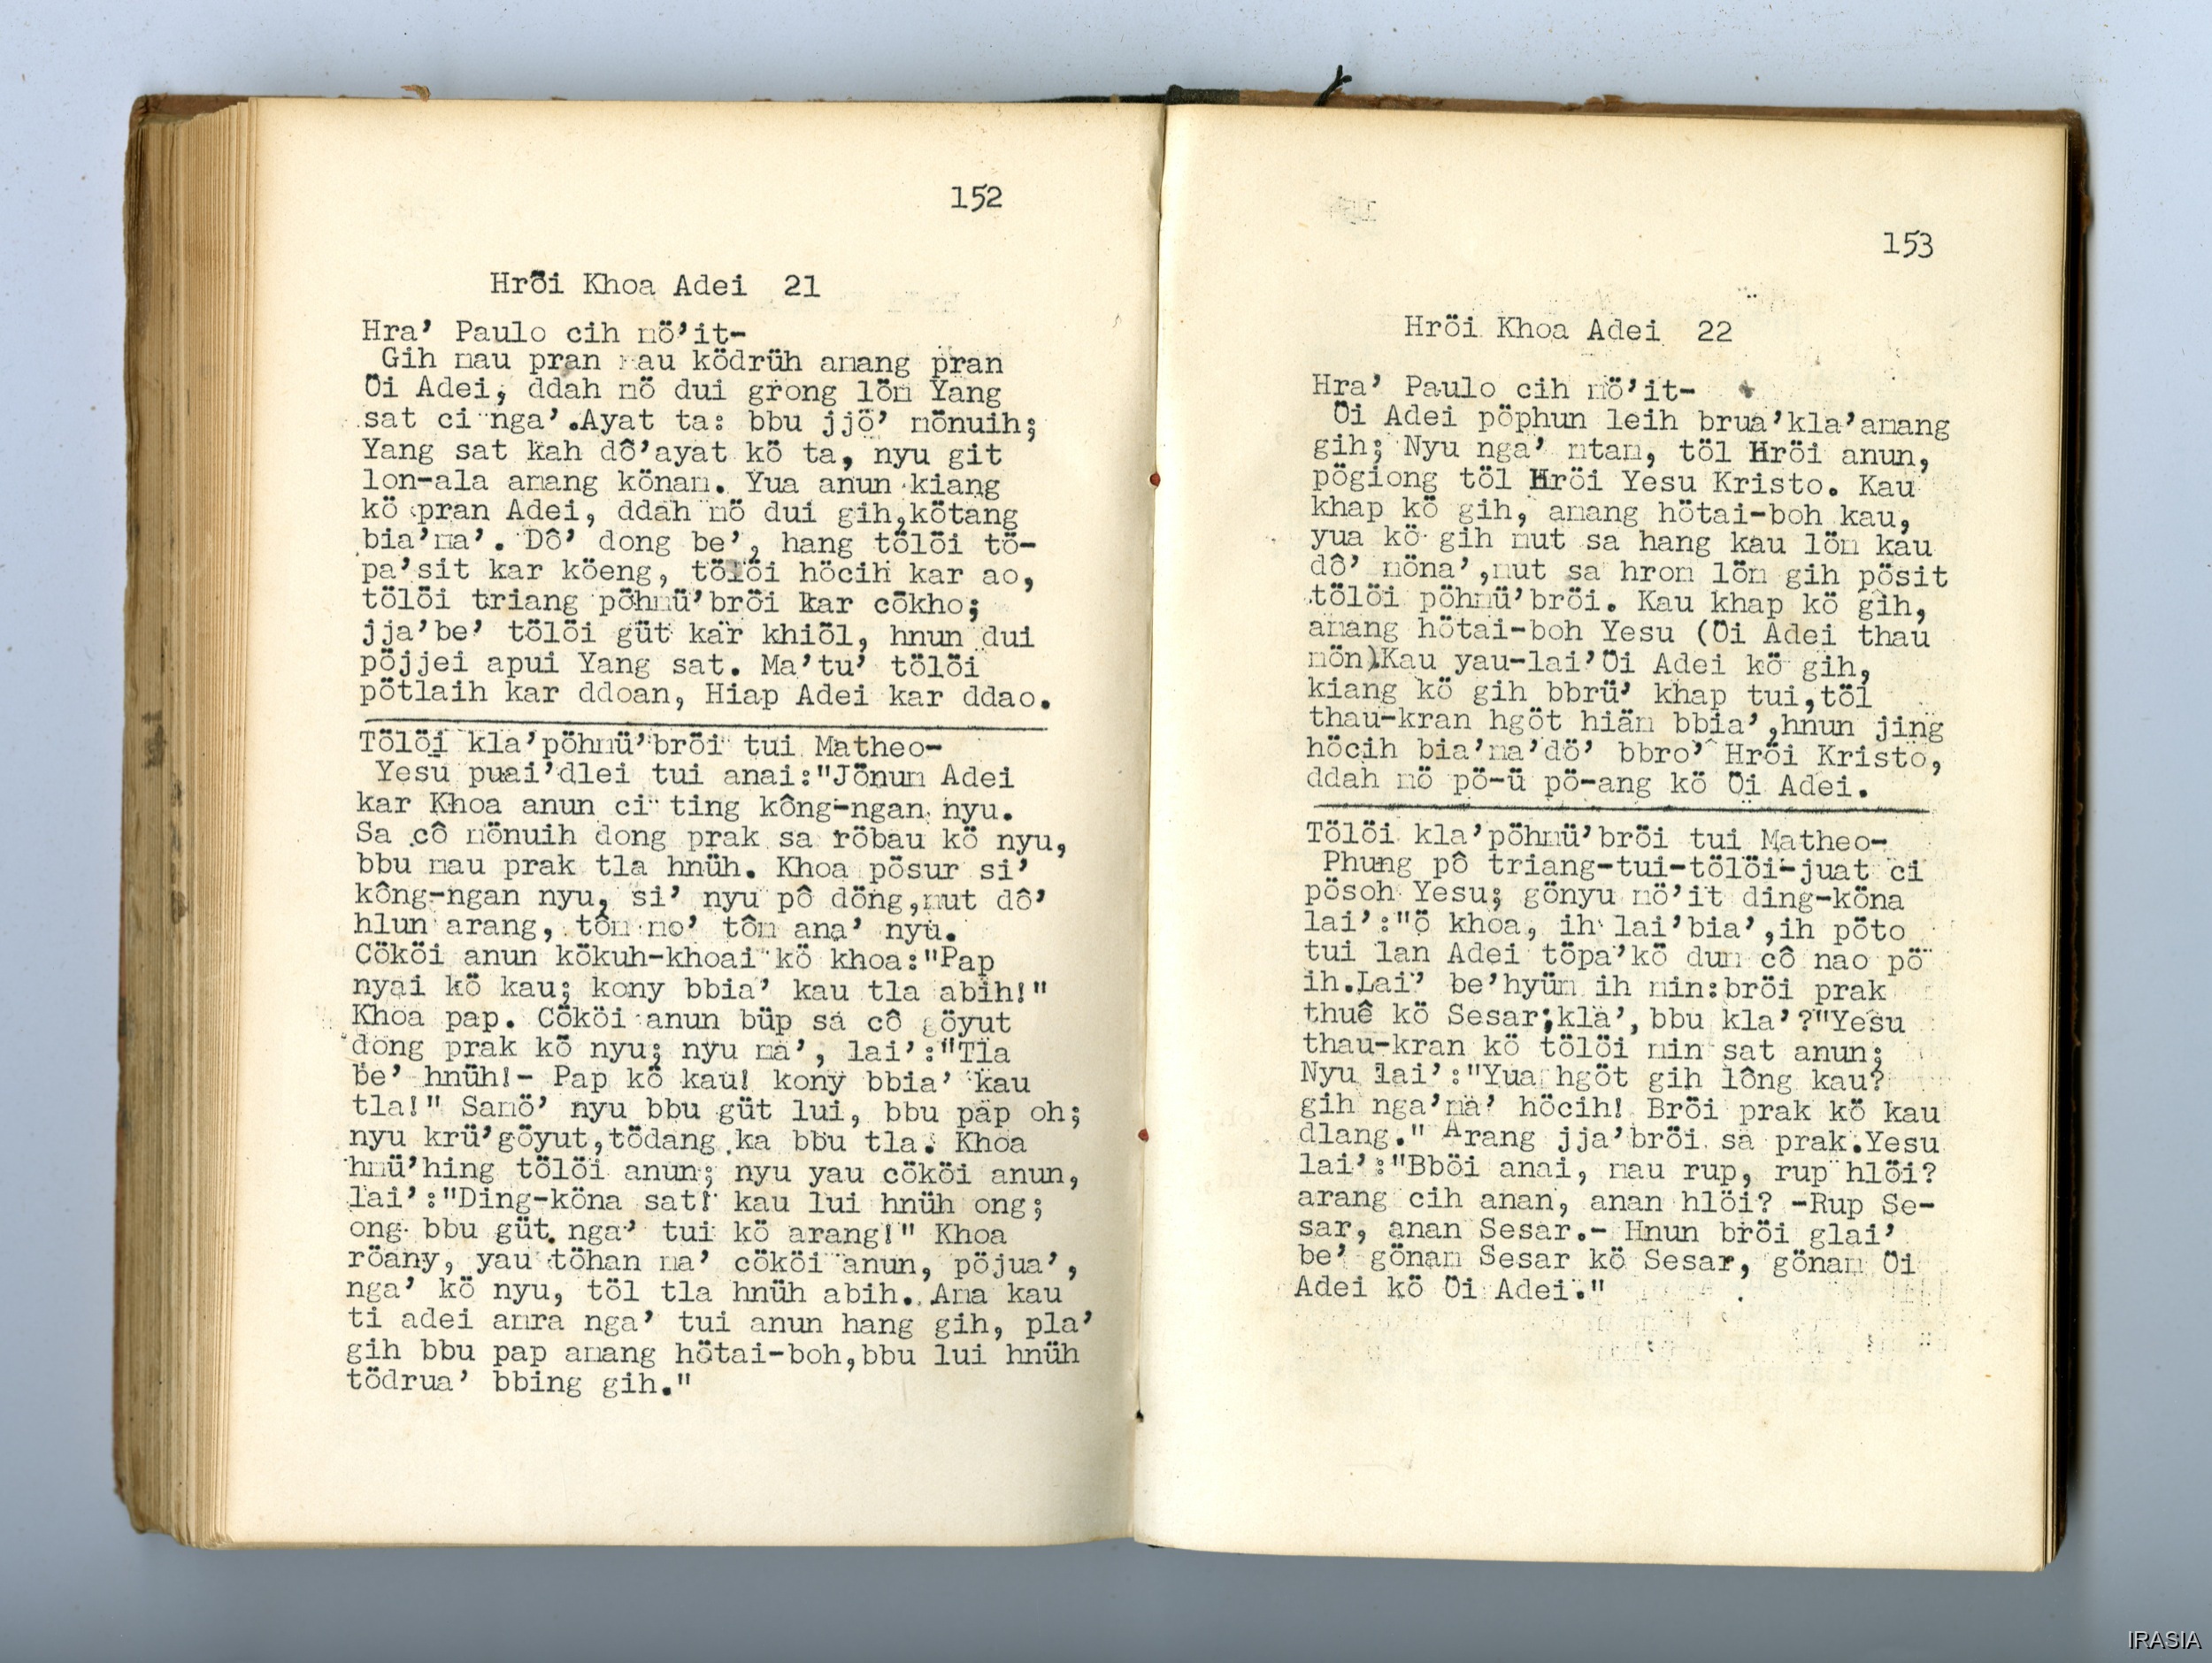 152
Hröi Khoa Adei 21
Hra’ Paulo cih mö’it-
Gih mau pran mau ködrüh amang pran
Öi Adei, ddah mö dui grong löm Yang
sat ci nga’.Ayat ta: bbu jjö’ mönuih;
Yang sat kah dô’ayat kö ta, nyu git
lon-ala amang könam. Yua anun kiang
kö pran Adei, ddah mö dui gih,kötang
bia’ma’. Dô’ dong be’, hang tölöi tö-
pa’sit kar köeng, tölöi höcih kar ao,
tölöi triang pöhmü’bröi kar cökho;
jja’be’ tölöi güt kar khiöl, hnun dui
pöjjei apui Yang sat. Ma’tu’ tölöi
pötlaih kar ddoan, Hiap Adei kar ddao.
Tölöi kla’pöhmü’bröi tui Matheo-
Yesu puai’dlei tui anai:"Jönum Adei
kar Khoa anun ci ting kông-ngan nyu.
Sa cô mönuih dong prak sa röbau kö nyu,
bbu mau prak tla hnüh. Khoa pösur si’
kông-ngan nyu, si’ nyu pô döng,mut dô’
hlun arang, tôm mo’ tôm ana’ nyu.
Cököi anun kökuh-khoai kö khoa:"Pap
nyai kö kau; kony bbia’ kau tla abih!"
Khoa pap. Cököi anun büp sa cô göyut
dong prak kö nyu; nyu ma’, lai’:"Tla
be’ hnüh!- Pap kö kau! kony bbia’ kau
tla!" Samö’ nyu bbu güt lui, bbu pap oh;
nyu krü’göyut,tödang ka bbu tla. Khoa
hmü’hing tölöi anun; nyu yau cököi anun,
lai’:"Ding-köna sat! kau lui hnüh ong;
ong bbu güt nga’ tui kö arang!" Khoa
röany, yau töhan ma’ cököi anun, pöjua’,
nga’ kö nyu, töl tla hnüh abih. Ama kau
ti adei amra nga’ tui anun hang gih, pla’
gih bbu pap amang hötai-boh,bbu lui hnüh
tödrua’ bbing gih."
153
Hröi Khoa Adei 22
Hra’ Paulo cih mö’it-
Öi Adei pöphun leih brua’kla’amang
gih; Nyu nga’ mtam, töl Hröi anun,
pögiong töl Hröi Yesu Kristo. Kau
khap kö gih, amang hötai-boh kau,
yua kö gih mut sa hang kau löm kau
dô’ möna’,mut sa hrom löm gih pösit
tölöi pöhmü’bröi. Kau khap kö gih,
amang hötai-boh Yesu (Öi Adei thau
mön).Kau yau-lai’Öi Adei kö gih,
kiang kö gih bbrü’ khap tui,töl
thau-kran hgöt hiäm bbia’,hnun jing
höcih bia’ma’dö’ bbro’ Hröi Kristo,
ddah mö pö-ü pö-ang kö Öi Adei.
Tölöi kla’pöhmü’bröi tui Matheo-
Phung pô triang-tui-tölöi-juat ci
pösoh Yesu; gönyu mö’it ding-köna
lai’:"ö khoa, ih lai’bia’,ih pöto
tui lan Adei töpa’kö dum cô nao pö
ih.Lai’ be’hyüm ih min:bröi prak
thuê kö Sesar;kla’,bbu kla’?"Yesu
thau-kran kö tölöi min sat anun;
Nyu lai’:"Yua hgöt gih lông kau?
gih nga’ma’ höcih! Bröi prak kö kau
dlang." Arang jja’bröi sa prak.Yesu
lai’:"Bböi anai, mau rup, rup hlöi?
arang cih anan, anan hlöi? -Rup Se-
sar, anan Sesar.- Hnun bröi glai’
be’ gönam Sesar kö Sesar, gönam Öi
Adei kö Öi Adei."
IRASIA